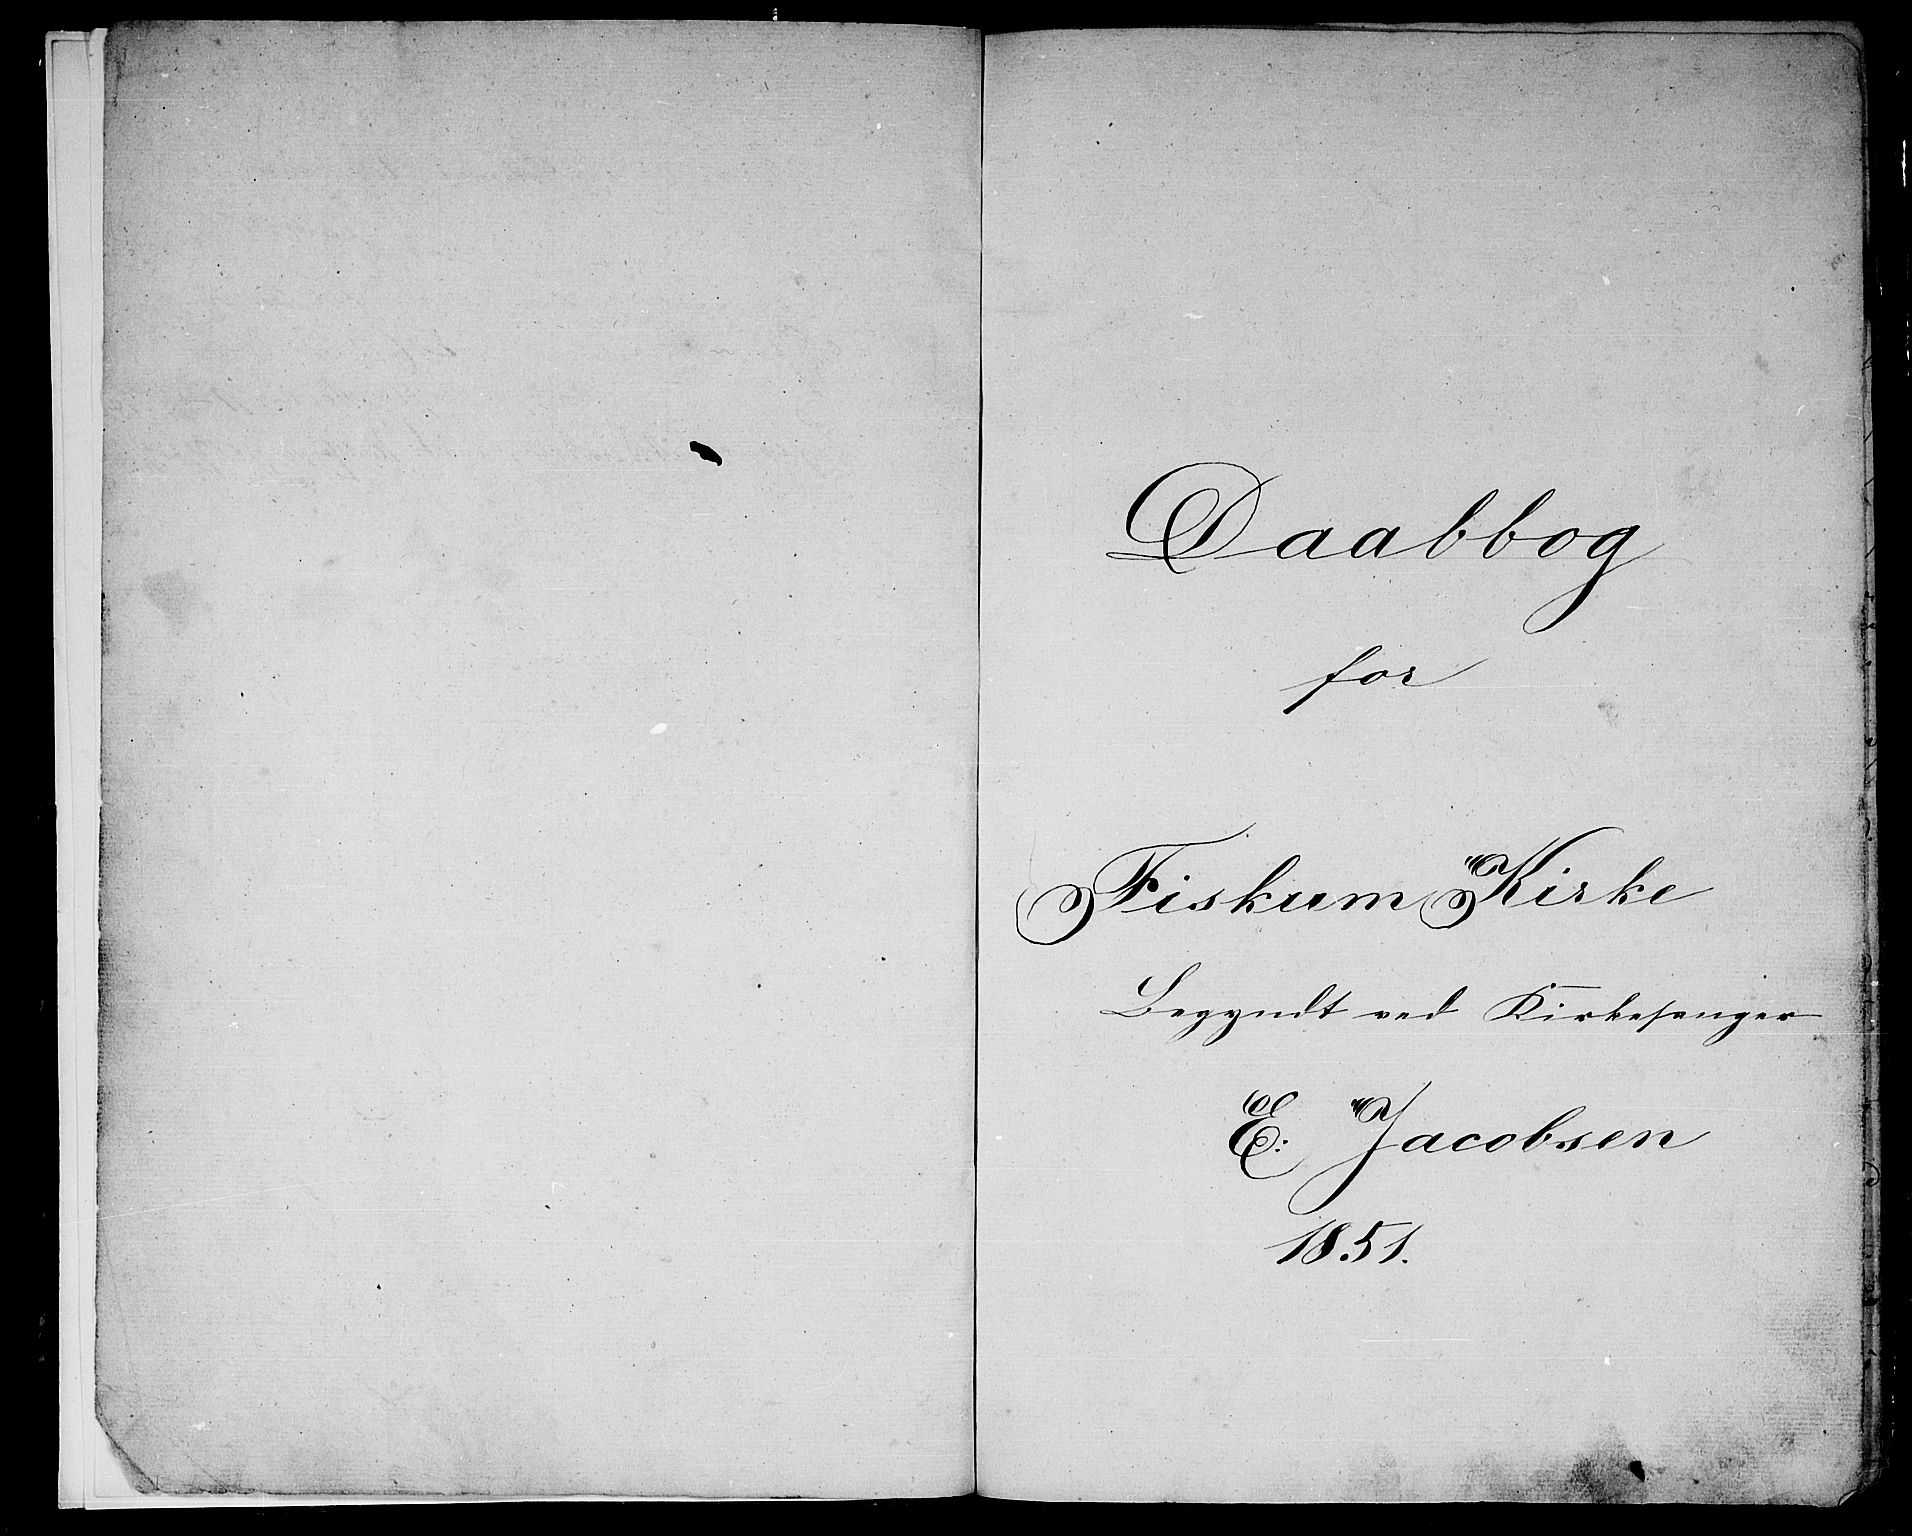 Daabbog
for
Fiskum Kirke
Begyndt ved Kirkesanger
E. Jacobsen
1851.